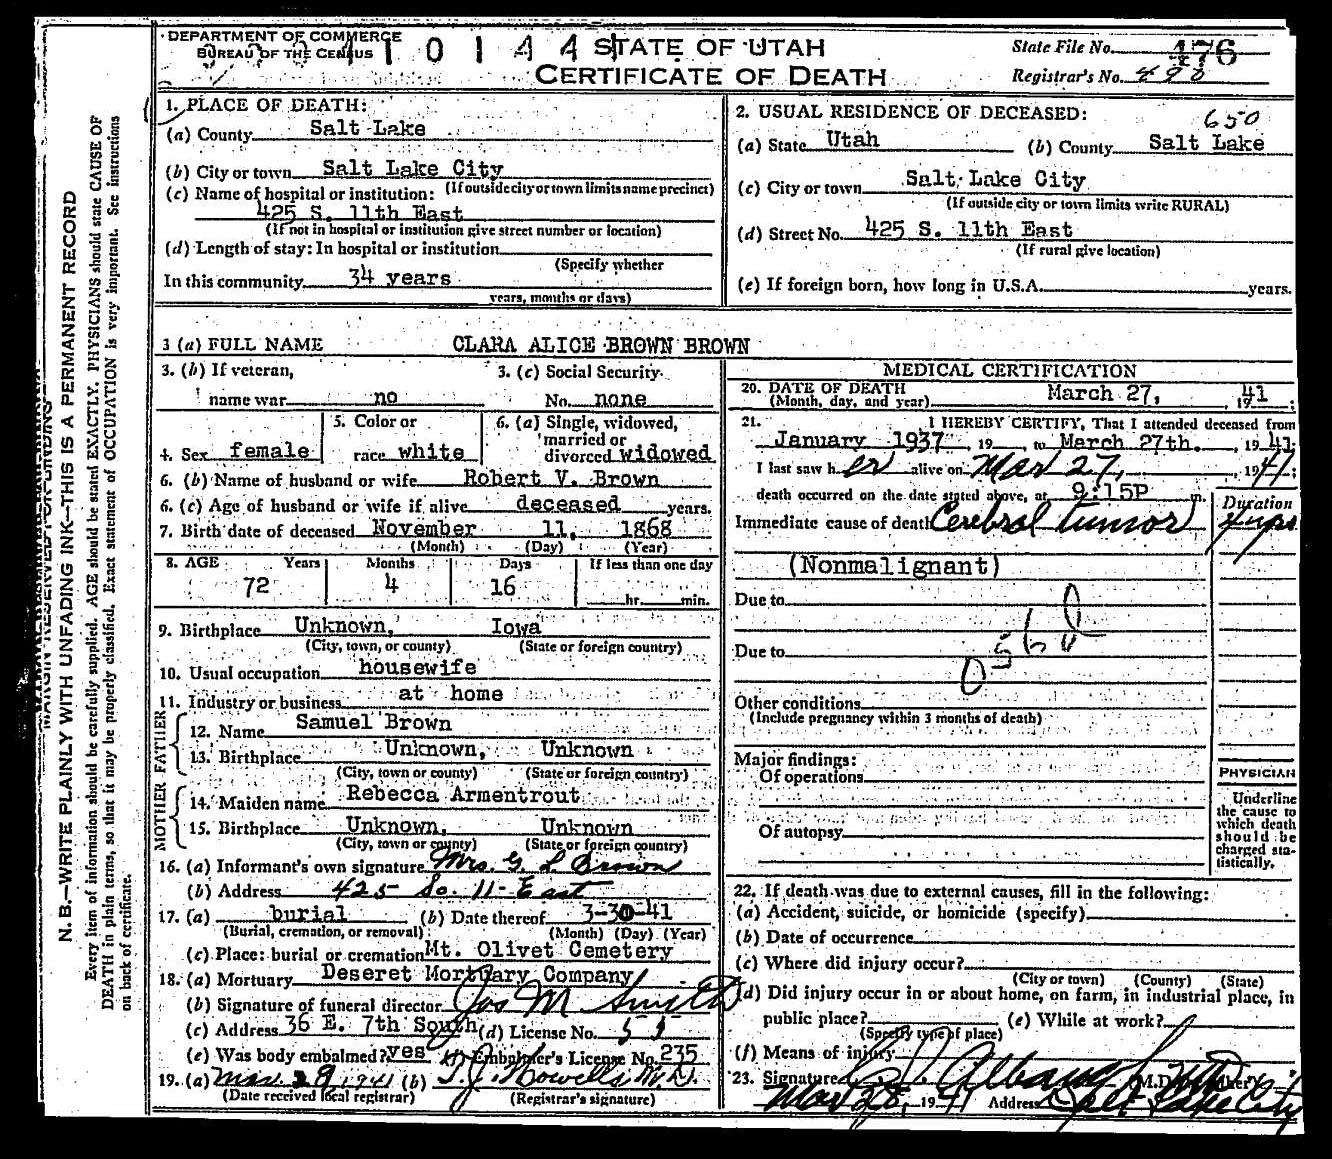 DEPARTMENT OF COMMERCE
BUREAU OF THE CENSUS
4 1 0 1 4 4 4
STATE OF UTAH
CERTIFICATE OF DEATH
State File No. 476
Registrar's No. 490
1. PLACE OF DEATH:
(a) County Salt Lake
(b) City or town Salt Lake City
(c) Name of hospital or institution: (If outside city or town limits name precinct)
425 S. 11th East
(If not in hospital or institution give street number or location)
(d) Length of stay: In hospital or institution
(Specify whether
In this community 34 years
years, months or days)
2. USUAL RESIDENCE OF DECEASED:
650
(a) State Utah (b) County Salt Lake
(c) City or town Salt Lake City
(If outside city or town limits write RURAL)
(d) Street No. 425 S. 11th East
(If rural give location)
(e) If foreign born, how long in U.S.A. years.
3 (a) FULL NAME CLARA ALICE BROWN BROWN
3. (b) If veteran,
name war no
3. (c) Social Security
No. none
4. Sex female
5. Color or
race white
6. (a) Single, widowed,
married or
divorced widowed
6. (b) Name of husband or wife Robert V. Brown
6. (c) Age of husband or wife if alive deceased years.
7. Birth date of deceased November 11, 1868
(Month) (Day) (Year)
8. AGE Years Months Days If less than one day
72 4 16
hr. min.
9. Birthplace Unknown, Iowa
(City, town, or county) (State or foreign country)
10. Usual occupation housewife
11. Industry or business at home
FATHER
12. Name Samuel Brown
13. Birthplace Unknown, Unknown
(City, town or county) (State or foreign country)
MOTHER
14. Maiden name Rebecca Armentrout
15. Birthplace Unknown, Unknown
(City, town or county) (State or foreign country)
16. (a) Informant's own signature Mrs. G. L Brown
(b) Address 425 So. 11-East
17. (a) burial (b) Date thereof 3-30-41
(Burial, cremation, or removal) (Month) (Day) (Year)
(c) Place: burial or cremation Mt. Olivet Cemetery
18. (a) Mortuary Deseret Mortuary Company
(b) Signature of funeral director Jos M Smith
(c) Address 36 E. 7th South (d) License No. 55
(e) Was body embalmed? yes (f) Embalmer's License No. 235
19. (a) Mar. 29 1941 (b) T. J. Howells M.D.
(Date received local registrar) (Registrar's signature)
MEDICAL CERTIFICATION
20. DATE OF DEATH
(Month, day, and year) March 27, , 1941;
21. I HEREBY CERTIFY, That I attended deceased from
January 1937, 19 , to March 27th. , 1941;
I last saw her alive on Mar 27, , 1941;
death occurred on the date stated above, at 9:15P m.
Duration
Immediate cause of death Cerebral tumor 4 yrs
(Nonmalignant)
Due to
Due to
Other conditions
(Include pregnancy within 3 months of death)
Major findings:
Of operations
Of autopsy
PHYSICIAN
Underline
the cause to
which death
should be
charged sta-
tistically.
22. If death was due to external causes, fill in the following:
(a) Accident, suicide, or homicide (specify)
(b) Date of occurrence
(c) Where did injury occur?
(City or town) (County) (State)
(d) Did injury occur in or about home, on farm, in industrial place, in
public place? (e) While at work?
(Specify type of place)
(f) Means of injury
23. Signature Albaugh
Mar 28, 1941 Address Salt Lake City
MARGIN RESERVED FOR BINDING
N. B.—WRITE PLAINLY WITH UNFADING INK—THIS IS A PERMANENT RECORD
Every item of information should be carefully supplied. AGE should be stated EXACTLY. PHYSICIANS should state CAUSE OF
DEATH in plain terms, so that it may be properly classified. Exact statement of OCCUPATION is very important. See instructions
on back of certificate.